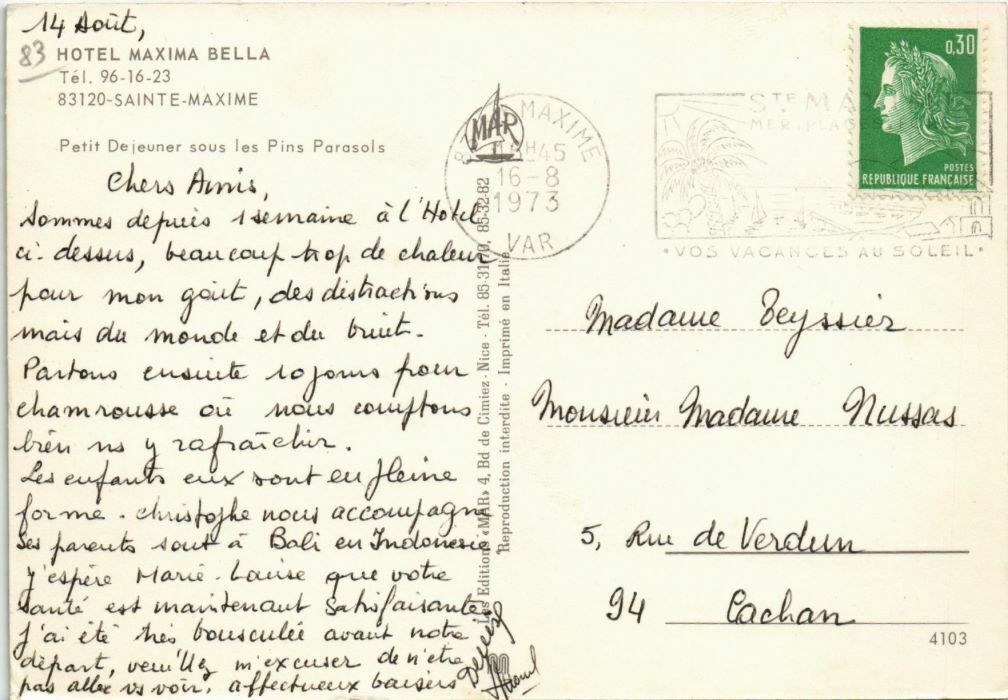 14 Août,
83 HOTEL MAXIMA BELLA
Tél. 96-16-23
83120-SAINTE-MAXIME
Petit Dejeuner sous les Pins Parasols
Chers Amis,
Sommes depuis 1 semaine à l'Hotel
ci-dessus, beaucoup trop de chaleur
pour mon goût, des distractions
mais du monde et du bruit.
Partons ensuite 10 jours pour
chamrousse où nous comptons
bien ns y rafraîchir.
Les enfants eux sont en pleine
forme. christophe nous accompagne
Ses parents sont à Bali en Indonésie,
J'espère Marie-Louise que votre
santé est maintenant satisfaisante
J'ai été très bousculée avant notre
départ, veuillez m'excuser de n'être
pas allée vs voir, affectueux baisers
MAR
Les Editions «MAR» 4, Bd de Cimiez - Nice - Tél. 85-31-70, 85-32-82
Reproduction interdite - Imprimé en Italie
MAXIME
45
16-8
1973
VAR
STE MA
MER. PLAGES
•VOS VACANCES AU SOLEIL•
0,30
POSTES
REPUBLIQUE FRANÇAISE
Madame Teyssier
Monsieur Madame Nussas
5, Rue de Verdun
94 Cachan
4103